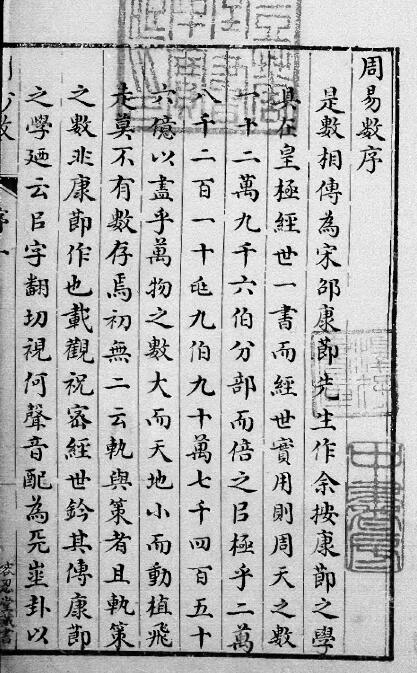 周易數序
是數相傳為宋邵康節先生作余按康節之學
具在皇極經世一書而經世實用則周天之數
一十二萬九千六伯分部而倍之㠯極乎二萬
八千二百一十九伯九十萬七千四百五十
六億以盡乎萬物之數大而天地小而動植飛
走莫不有數存焉初無二云軌與策者且軌策
之數非康節作也載觀祝宻經世鈐其傳康節
之學廼云㠯字翻切視何聲音配為卦以
序一